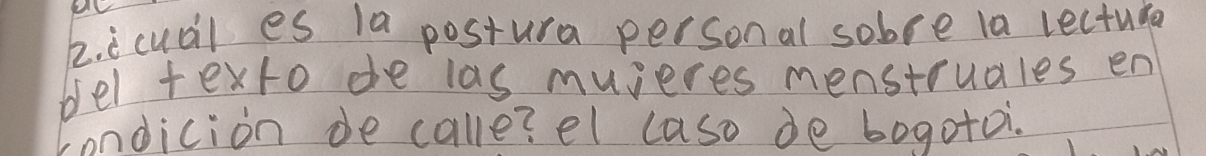 2. ¿cuál es la postura personal sobre la lectura
del texto de las mujeres menstruales en
condición de calle? el caso de bogotá.